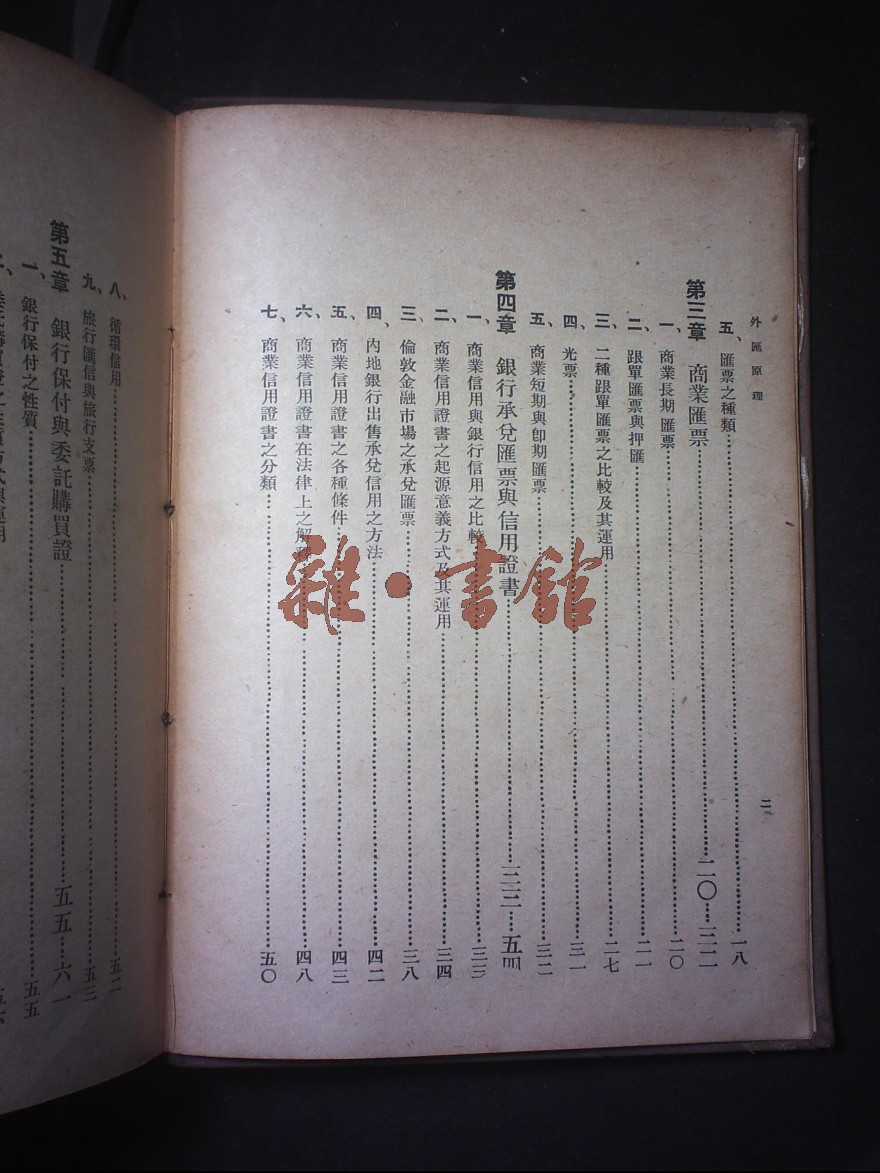 外匯原理
二
五、匯票之種類……一八
第三章 商業匯票……二〇……三二
一、商業長期匯票……二〇
二、跟單匯票與押匯……二一
三、二種跟單匯票之比較及其運用……二七
四、光票……三一
五、商業短期與卽期匯票……三二
第四章 銀行承兌匯票與信用證書……三三……五四
一、商業信用與銀行信用之比較……三三
二、商業信用證書之起源意義方式及其運用……三四
三、倫敦金融市場之承兌匯票……三八
四、內地銀行出售承兌信用之方法……四二
五、商業信用證書之各種條件……四三
六、商業信用證書在法律上之解釋……四八
七、商業信用證書之分類……五〇
八、循環信用……五二
九、旅行匯信與旅行支票……五三
第五章 銀行保付與委託購買證……五五……六一
一、銀行保付之性質……五五
二、委託購買證之性質方式與運用……五六
雜·書館